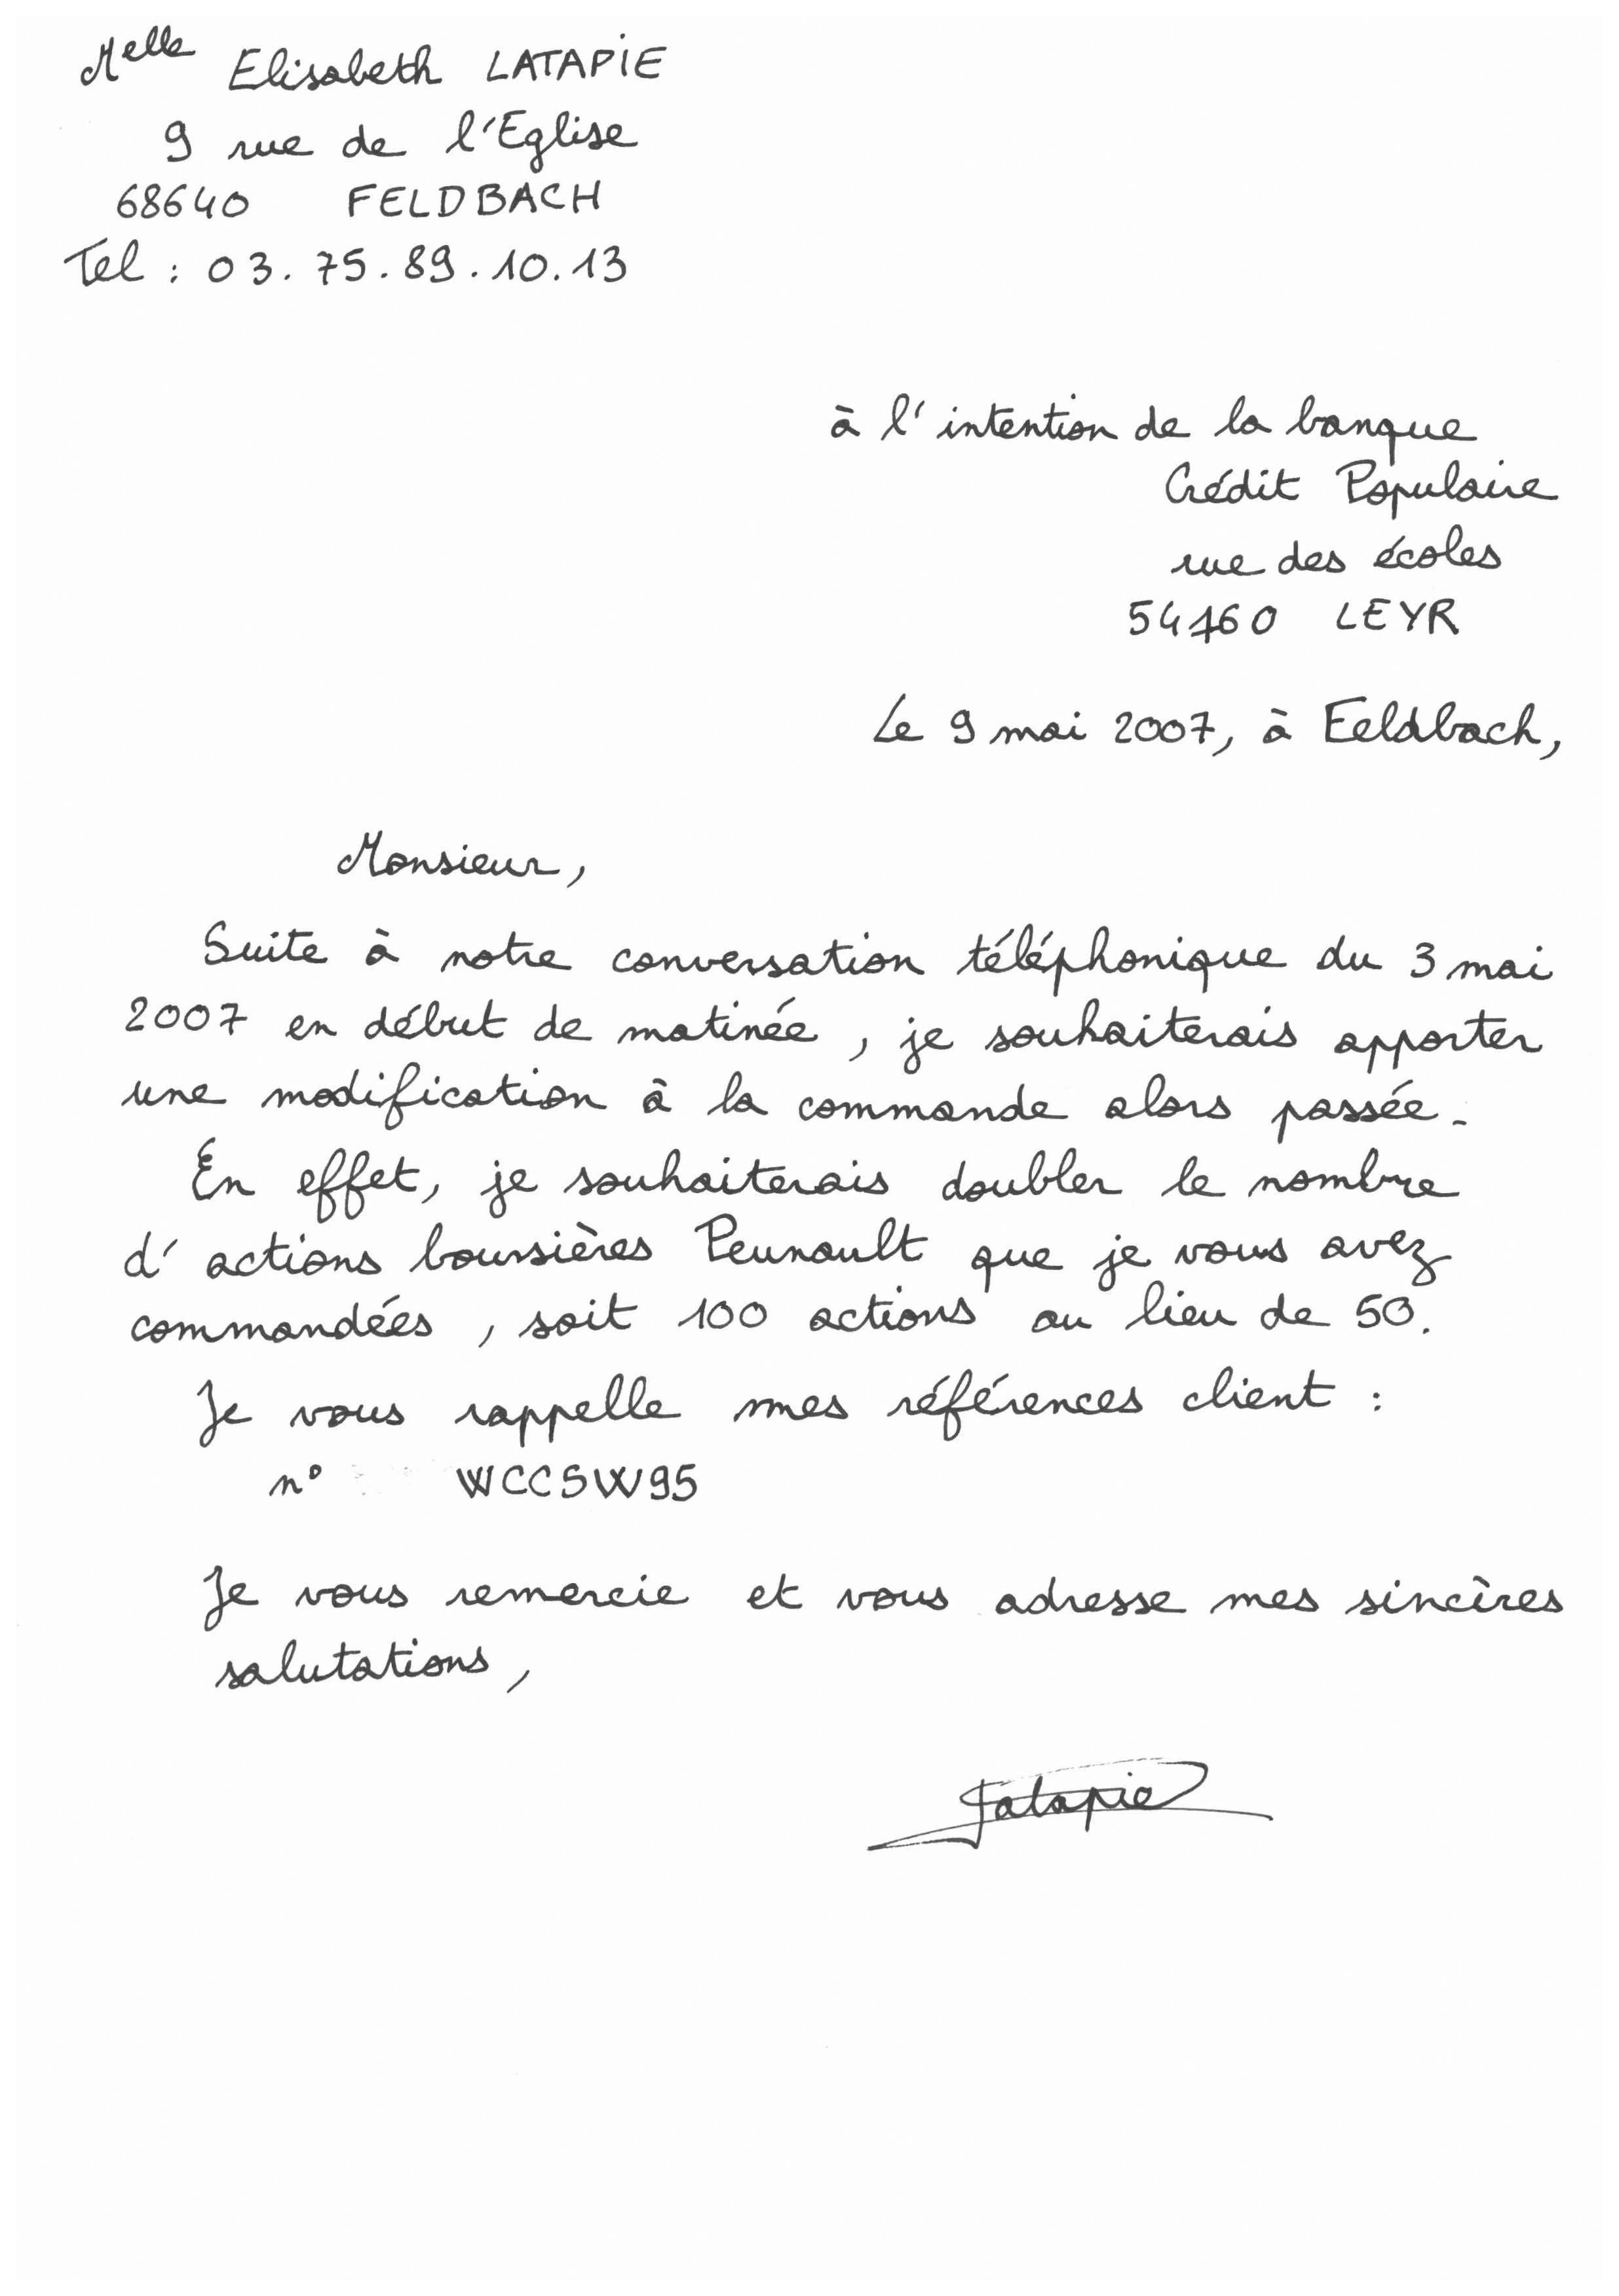 Melle Elisabeth LATAPIE
9 rue de l'Eglise
68640 FELDBACH
Tel : 03.75.89.10.13
à l'intention de la banque
Crédit Populaire
rue des écoles
54760 LEYR
Le 9 mai 2007, à Feldbach,
Monsieur,
Suite à notre conversation téléphonique du 3 mai
2007 en début de matinée, je souhaiterais apporter
une modification à la commande alors passée.
En effet, je souhaiterais doubler le nombre
d'actions boursières Peunault que je vous avez
commandées, soit 100 actions au lieu de 50.
Je vous rappelle mes références client :
n° WCCSW95
Je vous remercie et vous adresse mes sincères
salutations,
Latapie